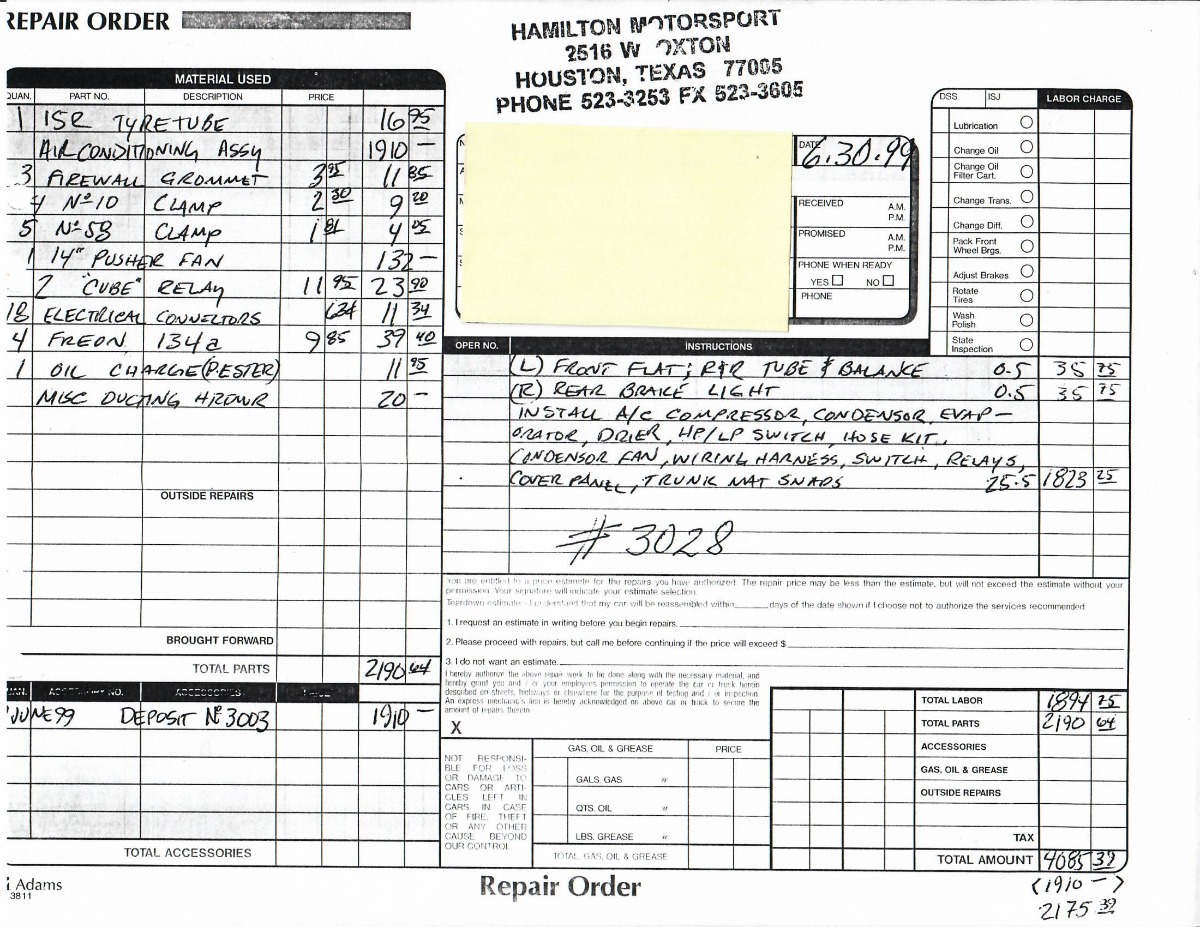 REPAIR ORDER
HAMILTON MOTORSPORT
2516 W OXTON
HOUSTON, TEXAS 77005
PHONE 523-3253 FX 523-3605
MATERIAL USED
QUAN. PART NO. DESCRIPTION PRICE
1 15R TYRETUBE 16 95
AIRCONDITIONING ASSY 1910 —
3 FIREWALL GROMMET 3 95 11 85
4 Nº 10 CLAMP 2 30 9 20
5 Nº 58 CLAMP 1 81 4 05
1 14" PUSHER FAN 132 —
2 "CUBE" RELAY 11 95 23 90
18 ELECTRICAL CONNECTORS 11 34
4 FREON 134a 9 85 39 40
1 OIL CHARGE (P.ESTER) 11 95
MISC DUCTING HRDWR 20 —
OUTSIDE REPAIRS
BROUGHT FORWARD
TOTAL PARTS 2190 64
ACCESSORIES PRICE
JUNE 99 DEPOSIT Nº 3003 1910 —
TOTAL ACCESSORIES
Adams
3811
DATE 6.30.99
RECEIVED A.M.
P.M.
PROMISED A.M.
P.M.
PHONE WHEN READY
YES NO
PHONE
DSS ISJ LABOR CHARGE
Lubrication
Change Oil
Change Oil
Filter Cart.
Change Trans.
Change Diff.
Pack Front
Wheel Brgs.
Adjust Brakes
Rotate
Tires
Wash
Polish
State
Inspection
OPER NO. INSTRUCTIONS
(L) FRONT FLAT; R&R TUBE & BALANCE 0.5 35 75
(R) REAR BRAKE LIGHT 0.5 35 75
INSTALL A/C COMPRESSOR, CONDENSOR, EVAP-
ORATOR, DRIER, HP/LP SWITCH, HOSE KIT,
CONDENSOR FAN, WIRING HARNESS, SWITCH, RELAYS,
COVER PANEL, TRUNK MAT SNAPS 25.5 1823 25
# 3028
You are entitled to a price estimate for the repairs you have authorized. The repair price may be less than the estimate, but will not exceed the estimate without your
permission. Your signature will indicate your estimate selection.
Teardown estimate - I understand that my car will be reassembled within ______ days of the date shown if I choose not to authorize the services recommended
1. I request an estimate in writing before you begin repairs.
2. Please proceed with repairs, but call me before continuing if the price will exceed $
3. I do not want an estimate.
I hereby authorize the above repair work to be done along with the necessary material, and
hereby grant you and / or your employees permission to operate the car or truck herein
described on streets, highways or elsewhere for the purpose of testing and / or inspection.
An express mechanic's lien is hereby acknowledged on above car or truck to secure the
amount of repairs thereto.
X
NOT RESPONSI-
BLE FOR LOSS
OR DAMAGE TO
CARS OR ARTI-
CLES LEFT IN
CARS IN CASE
OF FIRE, THEFT
OR ANY OTHER
CAUSE BEYOND
OUR CONTROL
GAS, OIL & GREASE PRICE
GALS. GAS "
QTS. OIL "
LBS. GREASE "
TOTAL GAS, OIL & GREASE
TOTAL LABOR 1894 75
TOTAL PARTS 2190 64
ACCESSORIES
GAS, OIL & GREASE
OUTSIDE REPAIRS
TAX
TOTAL AMOUNT 4085 39
<1910 —>
2175 39
Repair Order